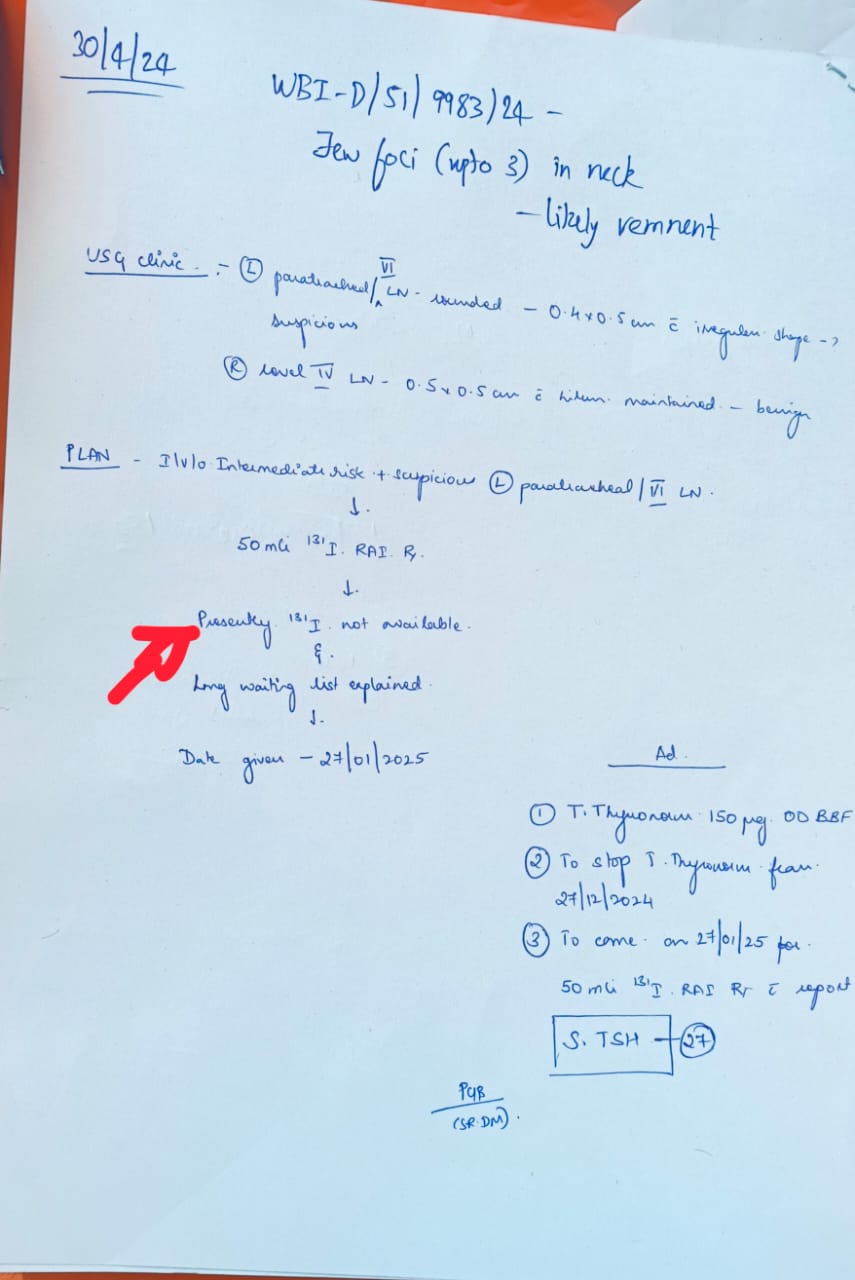 30/4/24
WBI-D/51/9983/24 -
Few foci (upto 3) in neck
- likely remnent
USG clinic :- Ⓛ paratracheal/ VI LN - rounded - 0.4x0.5 cm c̄ irregular shape ->
suspicious
Ⓡ level IV LN - 0.5x0.5 cm c̄ hilum maintained - benign
PLAN - I/v/o Intermediate risk + suspicious Ⓛ paratracheal/VI LN.
↓.
50 mci ¹³¹I. RAI. Rx.
↓.
Presently ¹³¹I. not available.
&.
Long waiting list explained.
↓.
Date given - 27/01/2025
Ad.
① T. Thyronorm 150 µg. OD BBF
② To stop T. Thyronorm from.
27/12/2024
③ To come on 27/01/25 for.
50 mci ¹³¹I. RAI Rx c̄ report
S. TSH - 27
(SR.DM).